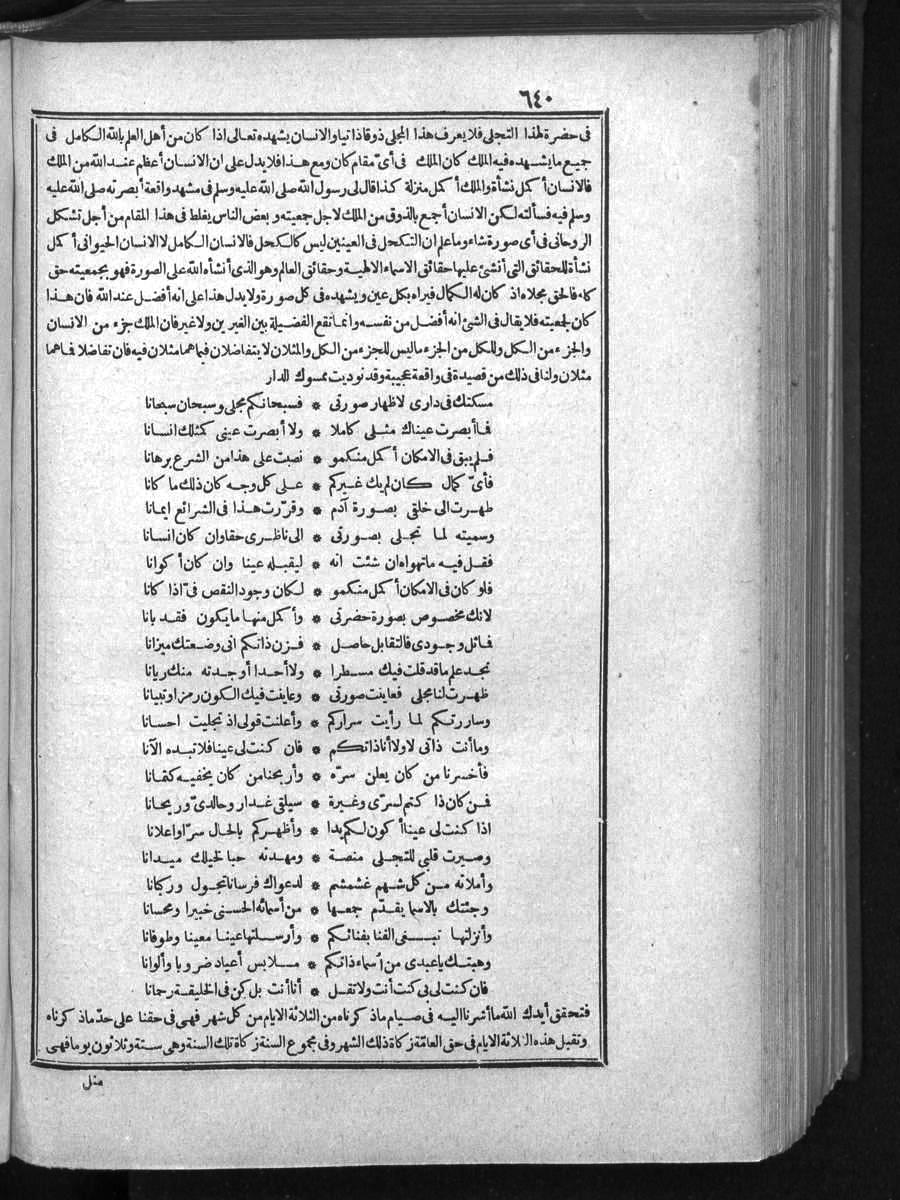 ٦٤٠
فى حضرة لهذا التجلى فلا يعرف هذا المجلى ذوقا ذاتيا والانسان يشهده تعالى اذا كان من أهل العلم بالله الكامل فى
جميع ما يشهده فيه الملك كان الملك فى أىّ مقام كان ومع هذا فلا يدل على ان الانسان أعظم عند الله من الملك
فالانسان أكمل نشأة والملك أكمل منزلة كذا قال لى رسول الله صلى الله عليه وسلم فى مشهد واقعة أبصرته صلى الله عليه
وسلم فيه فسألته لكن الانسان أجمع بالذوق من الملك لاجل جمعيته وبعض الناس يغلط فى هذا المقام من أجل تشكل
الروحانى فى أى صورة شاء وما علم ان التكحل فى العينين ليس كالكحل فالانسان الكامل لا الانسان الحيوانى أكمل
نشأة للحقائق التى أنشئ عليها حقائق الاسماء الالهية وحقائق العالم وهو الذى أنشأه الله على الصورة فهو بجمعيته حق
كله فالحق مجلاه اذ كان له الكمال فيراه بكل عين ويشهده فى كل صورة ولا يدل هذا على انه أفضل عند الله فان هذا
كان لجمعيته فلا يقال فى الشئ انه أفضل من نفسه وانما تقع الفضيلة بين الغيرين ولا غير فان الملك جزء من الانسان
والجزء من الكل وللكل من الجزء ما ليس للجزء من الكل والمثلان لا يتفاضلان فيما هما مثلان فيه فان تفاضلا فما هما
مثلان ولنا فى ذلك من قصيدة فى واقعة عجيبة وقد نوديت ممسوك الدار
مسكتك فى دارى لاظهار صورتى * فسبحانكم مجلى وسبحان سبحانا
فما أبصرت عيناك مثلى كاملا * ولا أبصرت عينى كمثلك انسانا
فلم يبق فى الامكان أكمل منكمو * نصبت على هذا من الشرع برهانا
فأىّ كمال كان لم يك غيركم * على كل وجه كان ذلك ما كانا
ظهرت الى خلقى بصورة آدم * وقرّرت هذا فى الشرائع ايمانا
وسميته لما تجلى بصورتى * الى ناظرى حقا وان كان انسانا
فقل فيه ما تهواه ان شئت انه * ليقبله عينا وان كان أكوانا
فلو كان فى الامكان أكمل منكمو * لكان وجود النقص فىّ اذا كانا
لانك مخصوص بصورة حضرتى * وأكمل منها ما يكون فقد بانا
فماثل وجودى فالتقابل حاصل * فزن ذاتكم انى وضعتك ميزانا
تجد علم ما قد قلت فيك مسطرا * ولا أحدا أوجدته منك ريانا
ظهرت لنا مجلى فعاينت صورتى * وعاينت فيك الكون رمزا وتبيانا
وساررتكم لما رأيت سراركم * وأعلنت قولى اذ تجليت احسانا
وما أنت ذاتى لا ولا أنا ذاتكم * فان كنت لى عينا فلا تبده الآنا
فأخسرنا من كان يعلن سرّه * وأربحنا من كان يخفيه كتمانا
فمن كان ذا كتم لسرّى وغيرة * سيلقى غدا روحا لدىّ وريحانا
اذا كنت لى عينا أكون لكم يدا * وأظهركم بالحال سرّا واعلانا
وصيرت قلبى للتجلى منصة * ومهدته حبا لخيلك ميدانا
وأملأته من كل شهم غشمشم * لدعواك فرسانا تجول وركبانا
وجئتك بالاسما يقدّم جمعها * من أسمائه الحسنى خبيرا ومحسانا
وأنزلتها تبغى الفنا بفنائكم * وأرسلتها عينا معينا وطوفانا
وهبتك يا عبدى من أسماء ذاتكم * ملابس أعياد ضروبا وألوانا
فان كنت لى بى كنت أنت ولا تقل * أنا أنت بل كن فى الخليقة رحمانا
فتحقق أيدك الله ما أشرنا اليه فى صيام ماذكرناه من الثلاثة الايام من كل شهر فهى فى حقنا على حدّ ماذكرناه
وتقبل هذه الثلاثة الايام فى حق العامّة زكاة ذلك الشهر وفى مجموع السنة زكاة تلك السنة وهى ستة وثلاثون يوما فهى
مثل